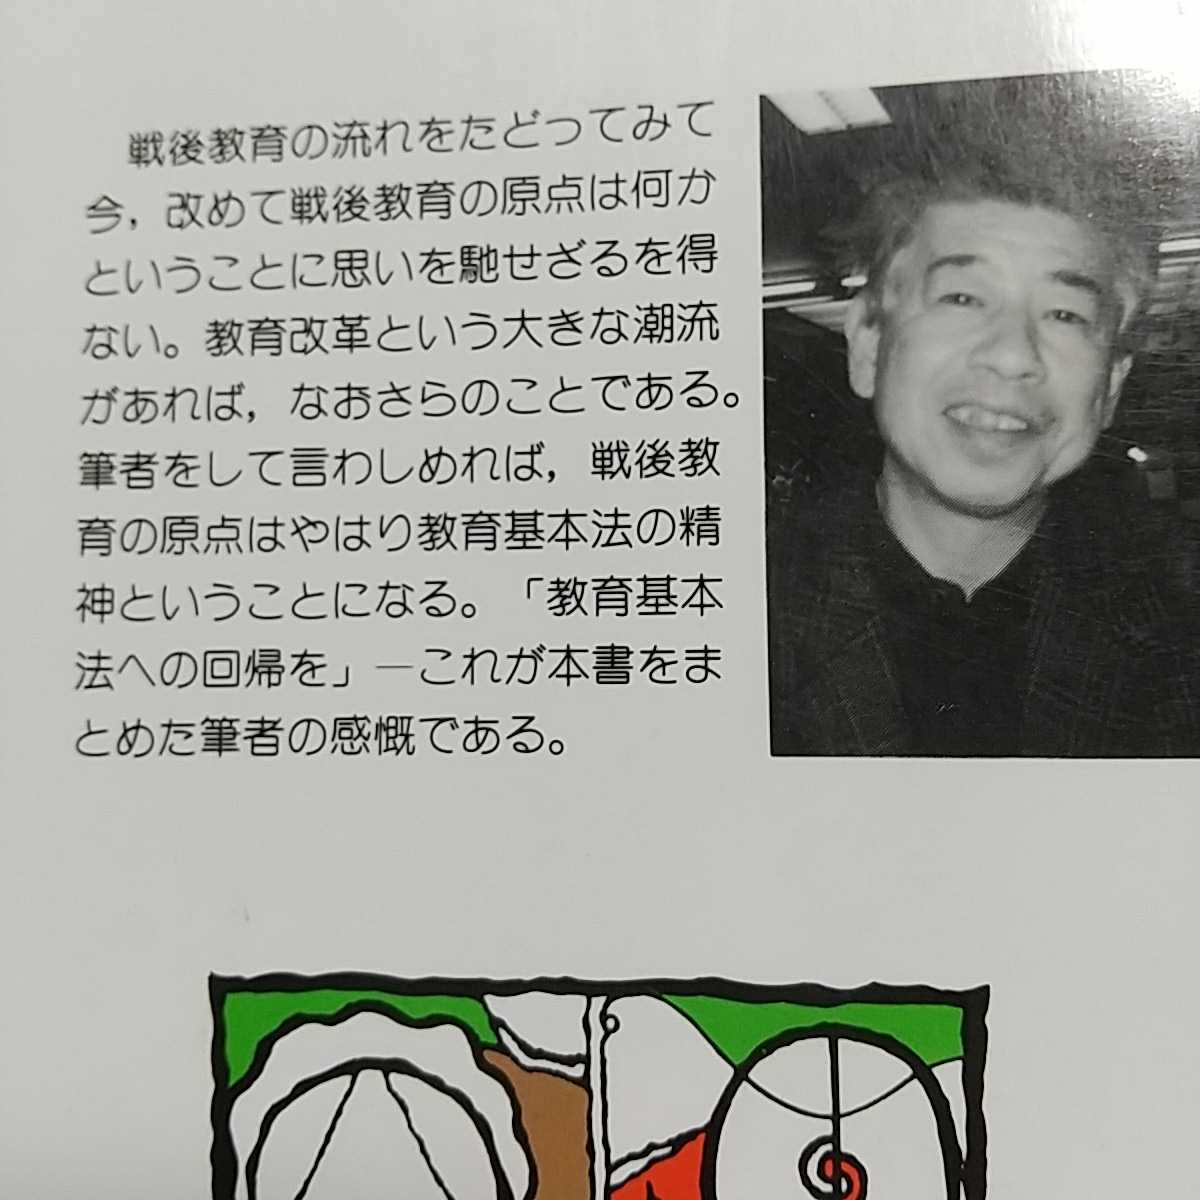 戦後教育の流れをたどってみて
今，改めて戦後教育の原点は何か
ということに思いを馳せざるを得
ない。教育改革という大きな潮流
があれば，なおさらのことである。
筆者をして言わしめれば，戦後教
育の原点はやはり教育基本法の精
神ということになる。「教育基本
法への回帰を」―これが本書をま
とめた筆者の感慨である。